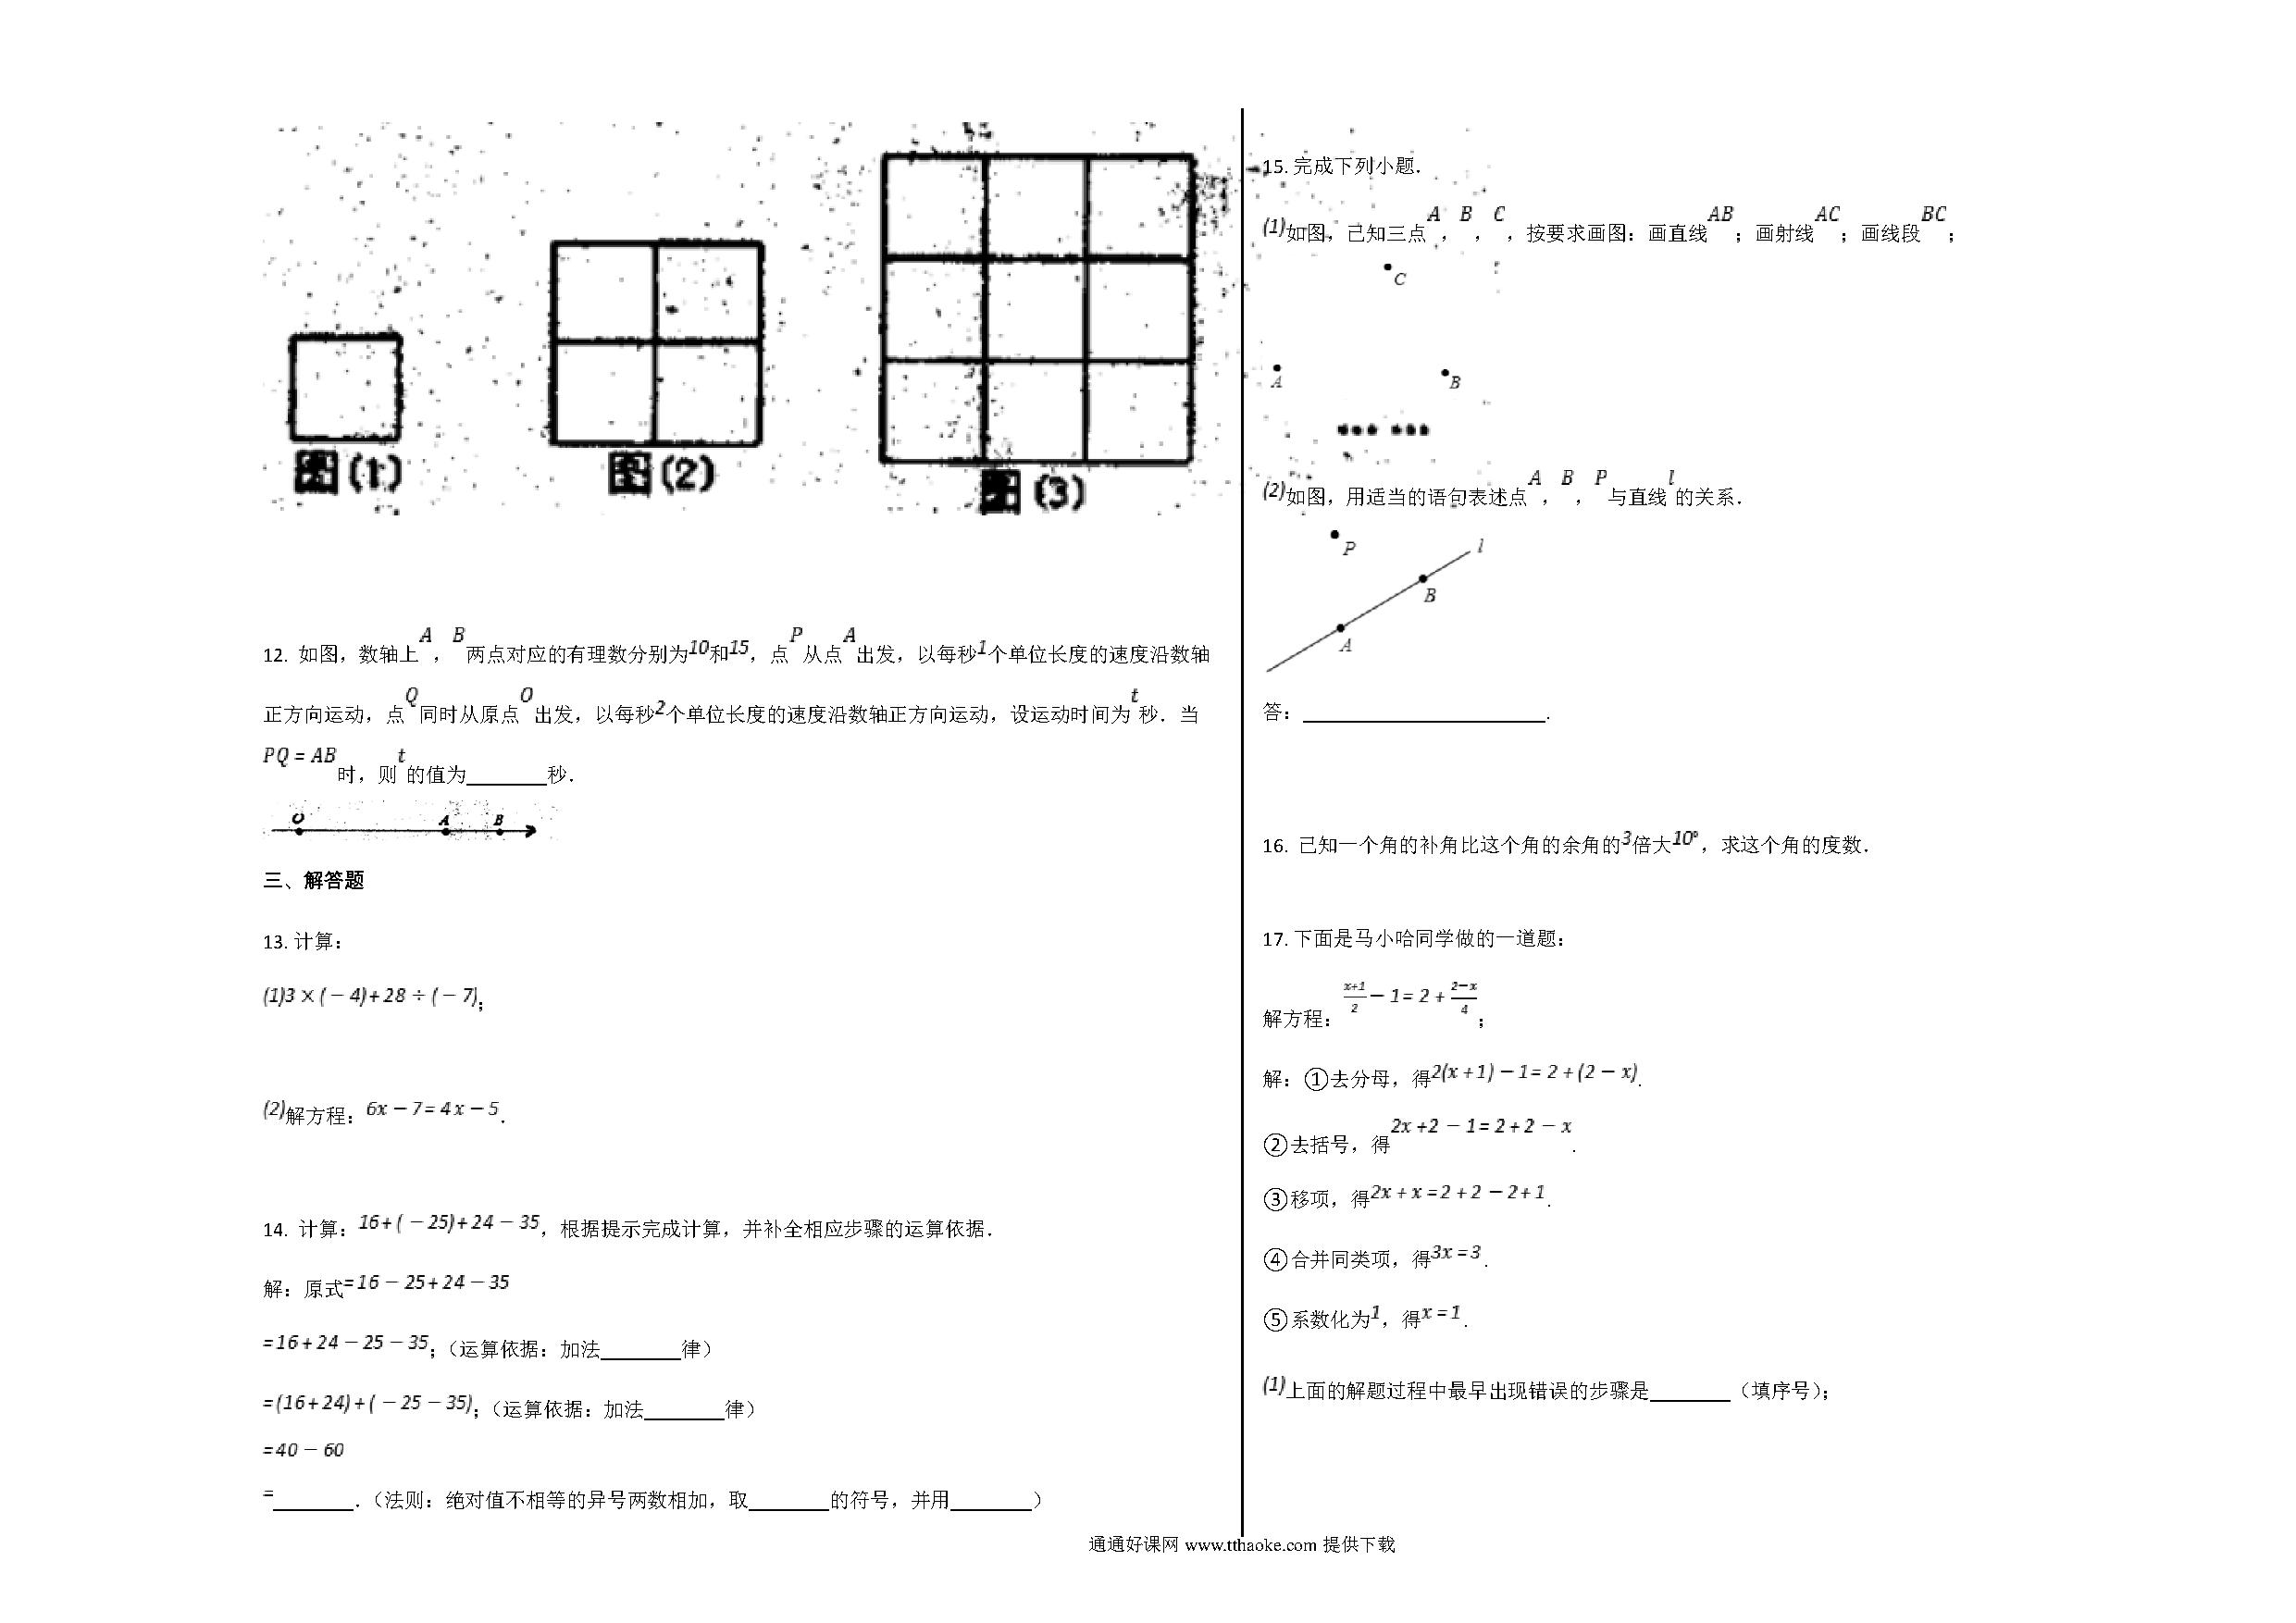 图(1)
图(2)
图(3)
12. 如图，数轴上A，B两点对应的有理数分别为10和15，点P从点A出发，以每秒1个单位长度的速度沿数轴
正方向运动，点Q同时从原点O出发，以每秒2个单位长度的速度沿数轴正方向运动，设运动时间为t秒．当
PQ = AB时，则t的值为________秒．
O A B
三、解答题
13. 计算：
(1)3 × ( − 4) + 28 ÷ ( − 7)；
(2)解方程：6x − 7 = 4x − 5．
14. 计算：16 + ( − 25) + 24 − 35，根据提示完成计算，并补全相应步骤的运算依据．
解：原式= 16 − 25 + 24 − 35
= 16 + 24 − 25 − 35；（运算依据：加法________律）
= (16 + 24) + ( − 25 − 35)；（运算依据：加法________律）
= 40 − 60
=________．（法则：绝对值不相等的异号两数相加，取________的符号，并用________）
15. 完成下列小题．
(1)如图，已知三点A，B，C，按要求画图：画直线AB；画射线AC；画线段BC；
C
A
B
(2)如图，用适当的语句表述点A，B，P与直线l的关系．
P
l
B
A
答：________________________．
16. 已知一个角的补角比这个角的余角的3倍大10°，求这个角的度数．
17. 下面是马小哈同学做的一道题：
解方程：(x+1)/2 − 1 = 2 + (2−x)/4；
解：①去分母，得2(x + 1) − 1 = 2 + (2 − x)．
②去括号，得2x + 2 − 1 = 2 + 2 − x．
③移项，得2x + x = 2 + 2 − 2 + 1．
④合并同类项，得3x = 3．
⑤系数化为1，得x = 1．
(1)上面的解题过程中最早出现错误的步骤是________（填序号）；
通通好课网 www.tthaoke.com 提供下载